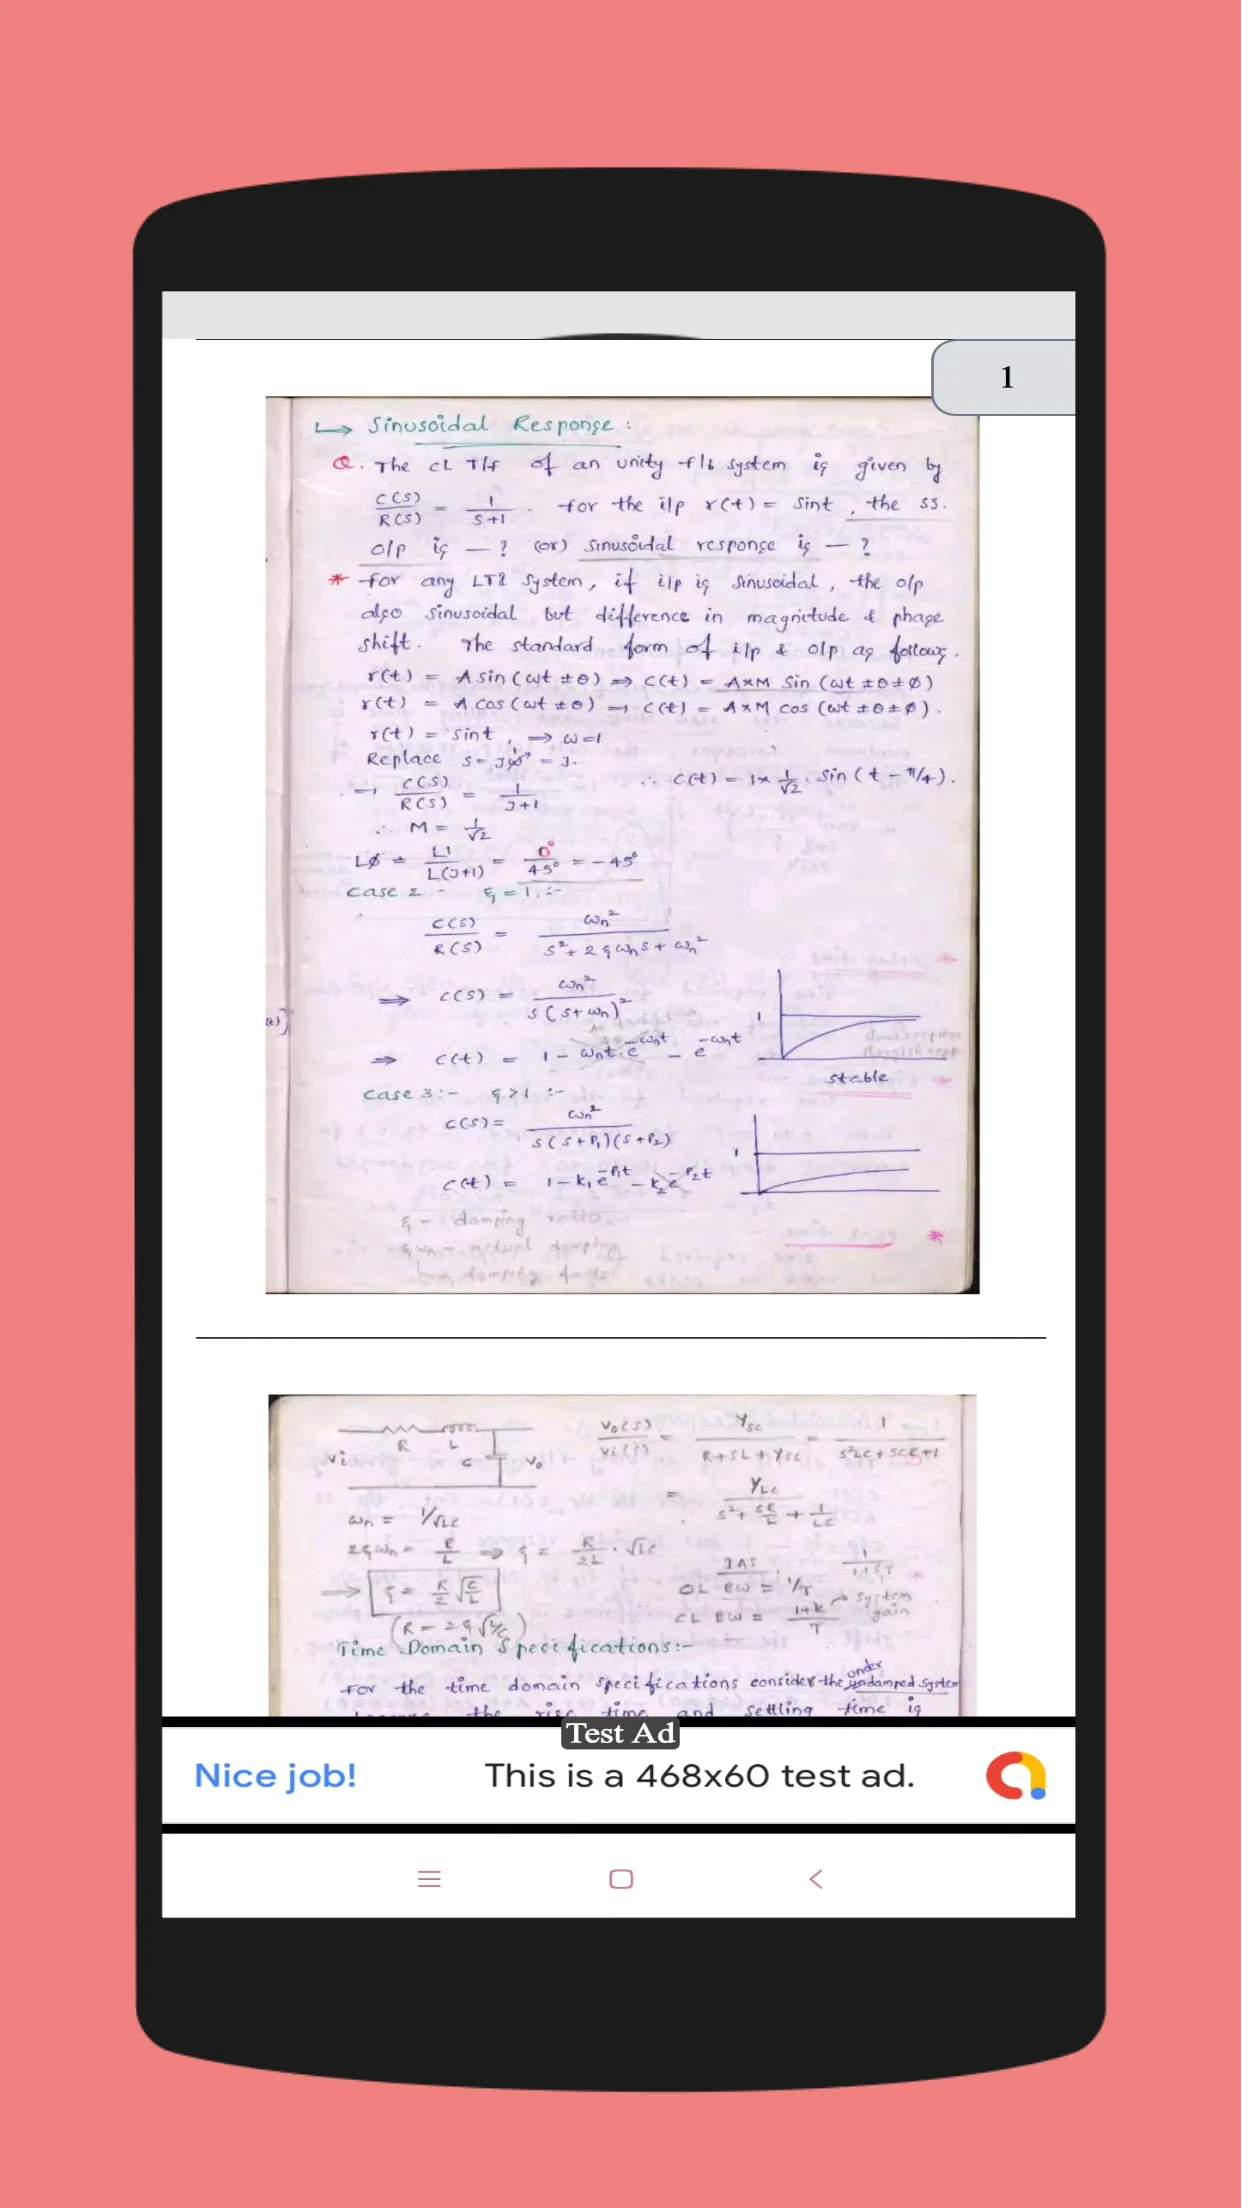 1
↳ Sinusoidal Response :
Q. The CL T/f of an unity f/b system is given by
C(S)/R(S) = 1/(S+1) . for the i/p r(t) = Sint , the ss.
o/p is — ? (or) sinusoidal response is — ?
* for any LTI System, if i/p is Sinusoidal, the o/p
also sinusoidal but difference in magnitude & phase
shift. The standard form of i/p & o/p as follows.
r(t) = A sin(ωt ± θ) ⇒ C(t) = A×M Sin (ωt ± θ ± ϕ)
r(t) = A cos(ωt ± θ) → C(t) = A×M cos (ωt ± θ ± ϕ).
r(t) = sint, ⇒ ω=1
Replace S = jω = j.
→ C(S)/R(S) = 1/(J+1) ∴ C(t) = 1 × 1/√2 . Sin (t − π/4).
∴ M = 1/√2
∠ϕ = ∠1/∠(J+1) = 0°/45° = −45°
Case 2 :- ξ = 1 :-
C(S)/R(S) = ωn²/(S² + 2ξωnS + ωn²)
⇒ C(S) = ωn²/(S(S+ωn)²)
1
⇒ C(t) = 1 − ωnt·e^−ωnt − e^−ωnt
stable
Case 3 :- ξ>1 :-
C(S) = ωn²/(S(S+P1)(S+P2))
1
C(t) = 1 − K1e^−P1t − K2e^−P2t
ξ − damping ratio
ξωn − actual damping
R L
Vi C Vo
Vo(S)/Vi(S) = 1/SC/(R+SL+1/SC) = 1/(S²LC+SCR+1)
= 1/LC/(S² + SR/L + 1/LC)
ωn = 1/√LC
2ξωn = R/L ⇒ ξ = R/2L . √LC
⇒ ξ = R/2 √C/L
(R = 2ξ√L/C)
OL BW = 1/T
CL BW = (1+K)/T → System gain
Time Domain Specifications:-
For the time domain specifications consider the under damped system
because the rise time and settling time is
Test Ad
Nice job! This is a 468x60 test ad.